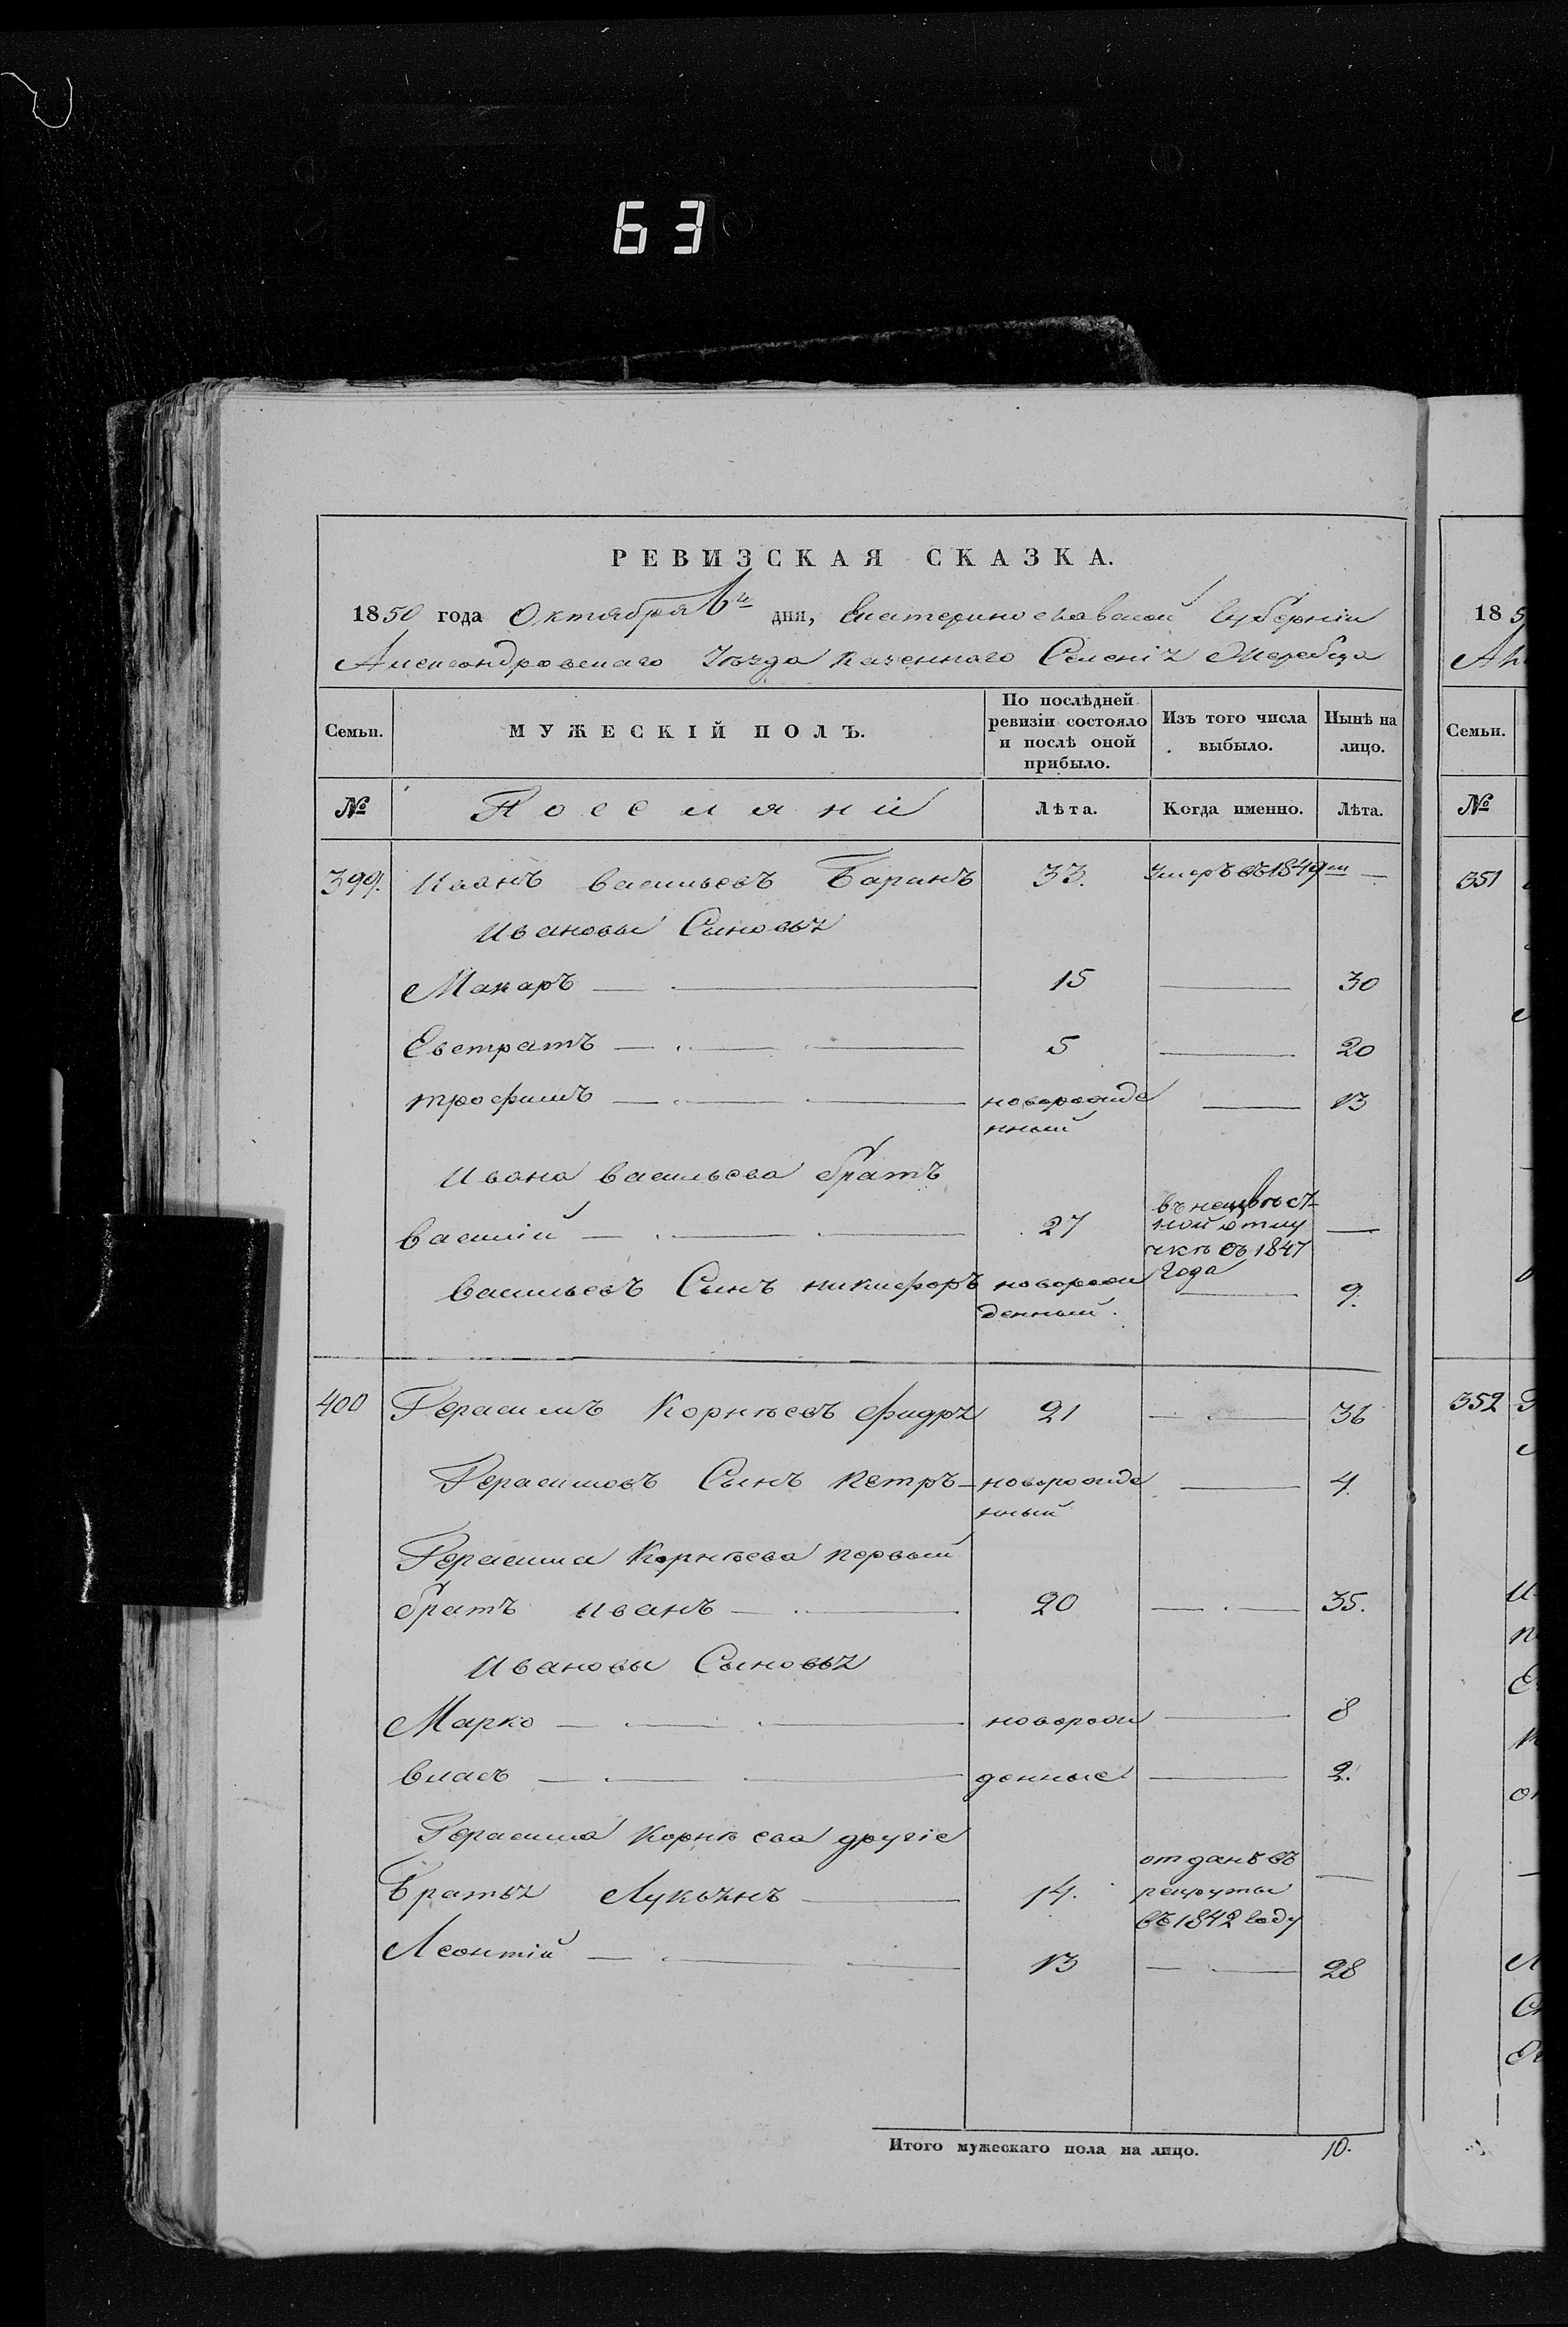 63
РЕВИЗСКАЯ СКАЗКА.
1850 года Октября 6го дня, Екатеринославской Губерніи
Александровскаго Уѣзда казенного Селенія Жеребца
Семьи. МУЖЕСКІЙ ПОЛЪ. По послѣдней ревизіи состояло и послѣ оной прибыло. Изъ того числа выбыло. Нынѣ на лицо.
№ Поселяни Лѣта. Когда именно. Лѣта.
399. Иванъ Васильевъ Баранъ 33. Умеръ въ 1849мъ —
Ивановы Сыновья
Макаръ — 15 — 30
Евстратъ — 5 — 20
трофимъ — новорожде — 13
нный
Ивана Васильева братъ
Василій — 27 въ неизвѣст
ной отлу —
чкѣ съ 1847
года
Васильевъ Сынъ никифоръ новорож — 9.
денный.
400 Герасимъ Корнѣевъ Фидря 21 — 36
Герасимовъ Сынъ Петръ — новорожде — 4.
нный
Герасима Корнѣева первый
братъ иванъ — 20 — 35.
Ивановы Сыновья
Марко — новорож — 8
Власъ — денные — 2.
Герасима Корнѣева другіе
отданъ въ
Братья Лукьянъ — 14. рекруты —
въ 1842 году
Леонтій — 13 — 28
Итого мужескаго пола на лицо. 10.
185
Семьи.
№
351
352